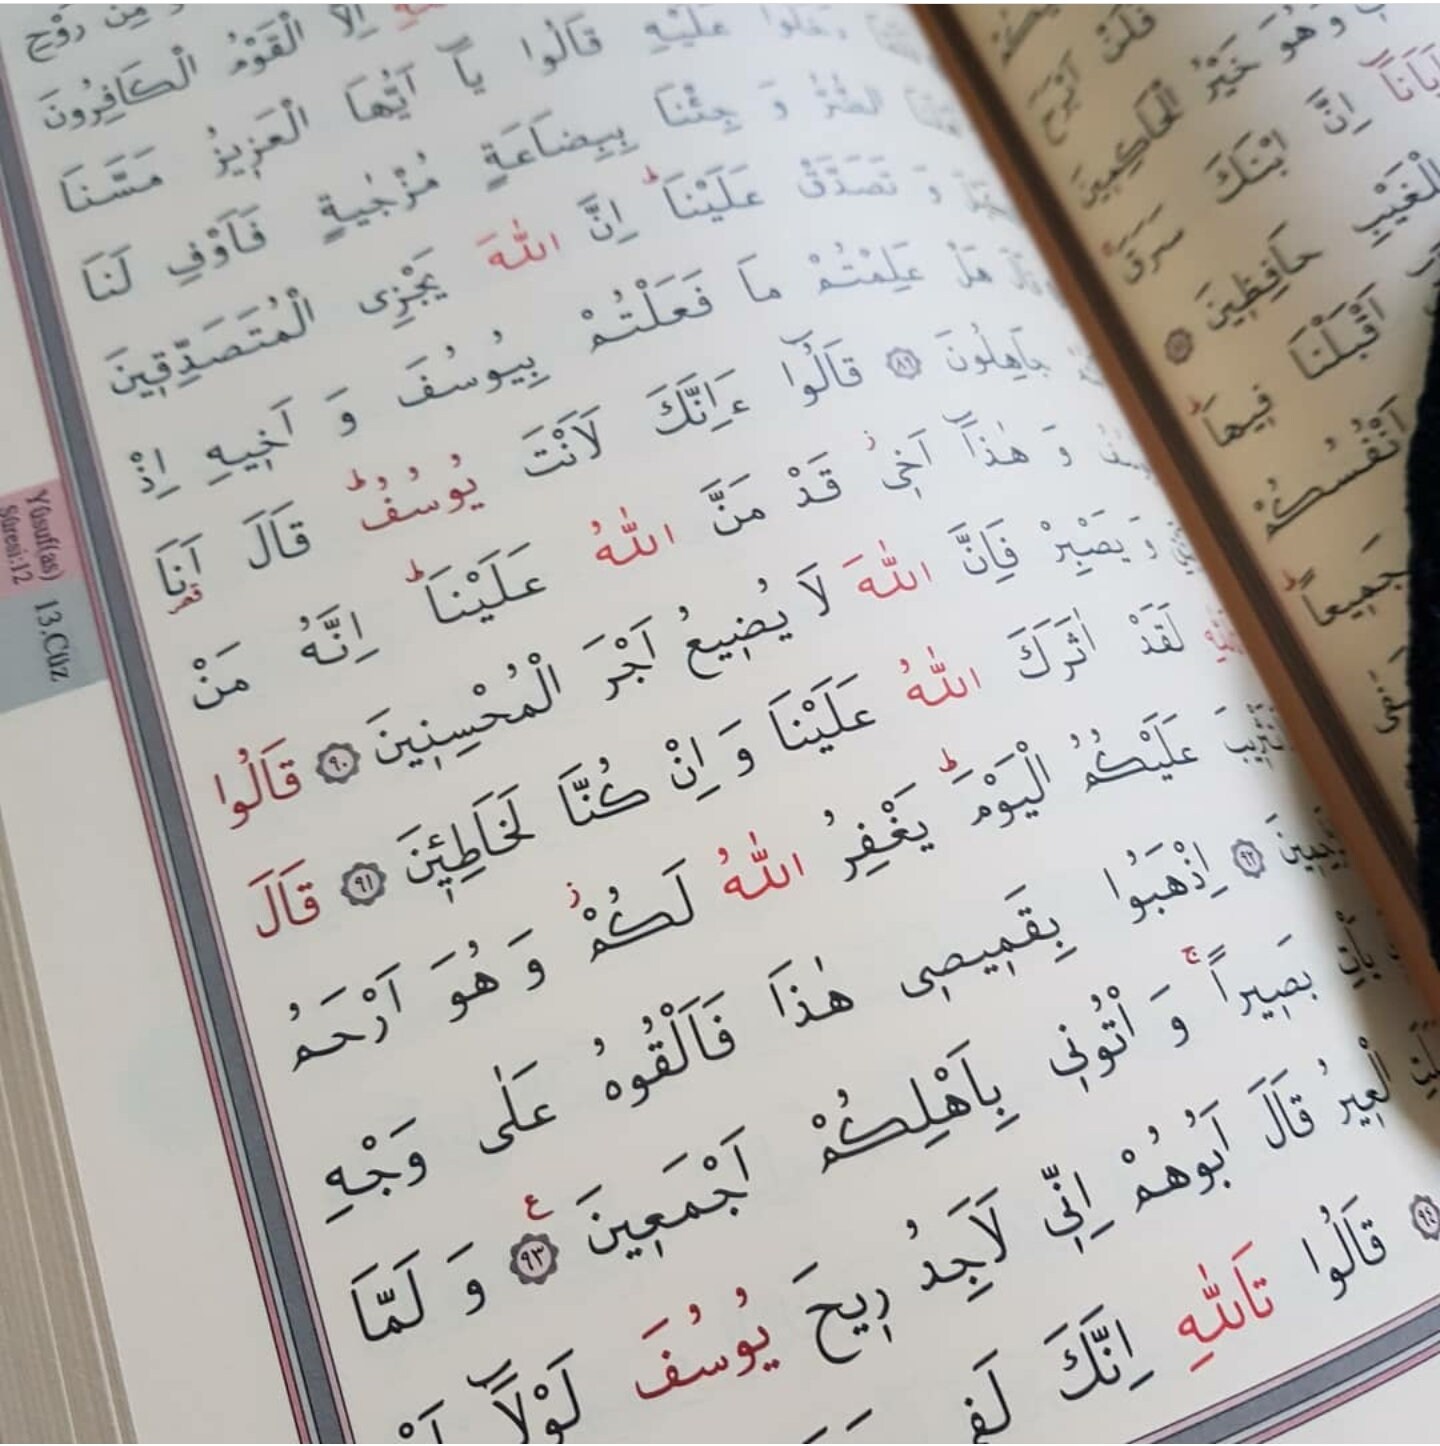 مِنْ رَوْحِ
اِلَّا الْقَوْمُ الْكَافِرُونَ
دَخَلُوا عَلَيْهِ قَالُوا يَٓا اَيُّهَا الْعَزِيزُ مَسَّنَا
الضُّرُّ وَ جِئْنَا بِبِضَاعَةٍ مُزْجٰيةٍ فَاَوْفِ لَنَا
وَ تَصَدَّقْ عَلَيْنَاۜ اِنَّ اللّٰهَ يَجْزِى الْمُتَصَدِّقِينَ
قَالَ هَلْ عَلِمْتُمْ مَا فَعَلْتُمْ بِيُوسُفَ وَ اَخِيهِ اِذْ
جَاهِلُونَ ﴿٨٩﴾ قَالُٓوا ءَاِنَّكَ لَاَنْتَ يُوسُفُۜ قَالَ اَنَا
وَ هٰذَٓا اَخِىۘ قَدْ مَنَّ اللّٰهُ عَلَيْنَاۜ اِنَّهُ مَنْ
وَ يَصْبِرْ فَاِنَّ اللّٰهَ لَا يُضِيعُ اَجْرَ الْمُحْسِنِينَ ﴿٩٠﴾ قَالُوا
لَقَدْ اٰثَرَكَ اللّٰهُ عَلَيْنَا وَ اِنْ كُنَّا لَخَاطِئِينَ ﴿٩١﴾ قَالَ
تَثْرِيبَ عَلَيْكُمُ الْيَوْمَۜ يَغْفِرُ اللّٰهُ لَكُمْۘ وَ هُوَ اَرْحَمُ
﴿٩٢﴾ اِذْهَبُوا بِقَمِيصِى هٰذَا فَاَلْقُوهُ عَلٰى وَجْهِ
يَاْتِ بَصِيراًۚ وَ اْتُونِى بِاَهْلِكُمْ اَجْمَعِينَ ﴿٩٣﴾ ع وَ لَمَّا
الْعِيرُ قَالَ اَبُوهُمْ اِنِّى لَاَجِدُ رِيحَ يُوسُفَ لَوْلَٓا
﴿٩٤﴾ قَالُوا تَاللّٰهِ اِنَّكَ لَفِى
Yûsuf(as)
Sûresi:12
13.Cüz
فَلَنْ اَبْرَحَ
وَ هُوَ خَيْرُ الْحَاكِمِينَ
اِنَّ ابْنَكَ سَرَقَۚ
لِلْغَيْبِ حَافِظِينَ
اَقْبَلْنَا فِيهَاۜ
اَنْفُسُكُمْ
جَمِيعاًۜ